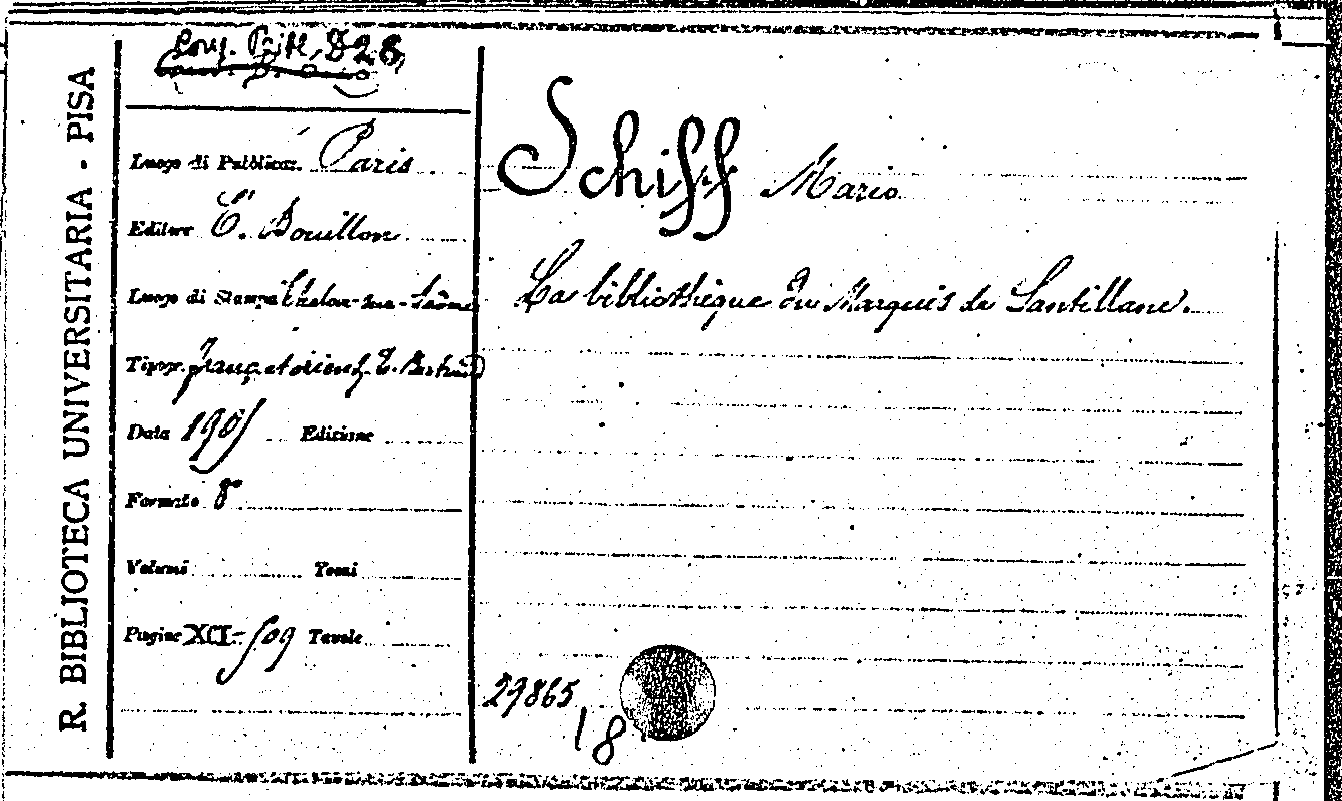 R. BIBLIOTECA UNIVERSITARIA - PISA
Luogo di Pubblicaz. Paris
Editore E. Bouillon
Luogo di Stampa Chalon-sur-Saône
Tipogr. franç. et orient. E. Bertrand
Data 1905 Edizione
Formato 8°
Volumi Tomi
Pagine XCI-509 Tavole
Schiff Mario
La bibliothèque du Marquis de Santillane.
29865
18